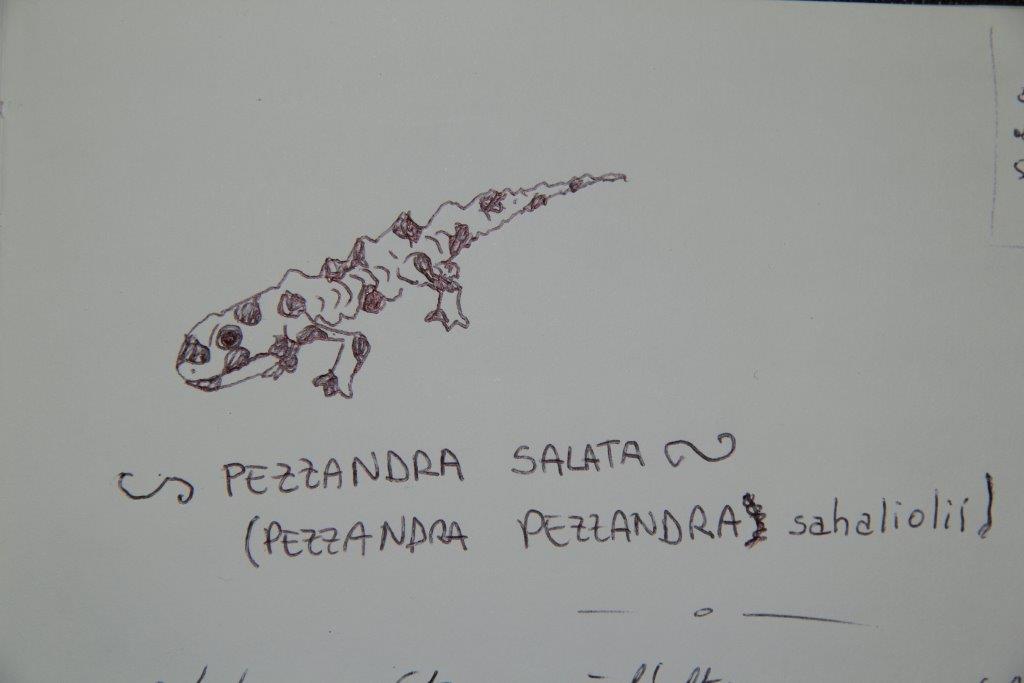 PEZZANDRA SALATA
(PEZZANDRA PEZZANDRA sahaliolii)